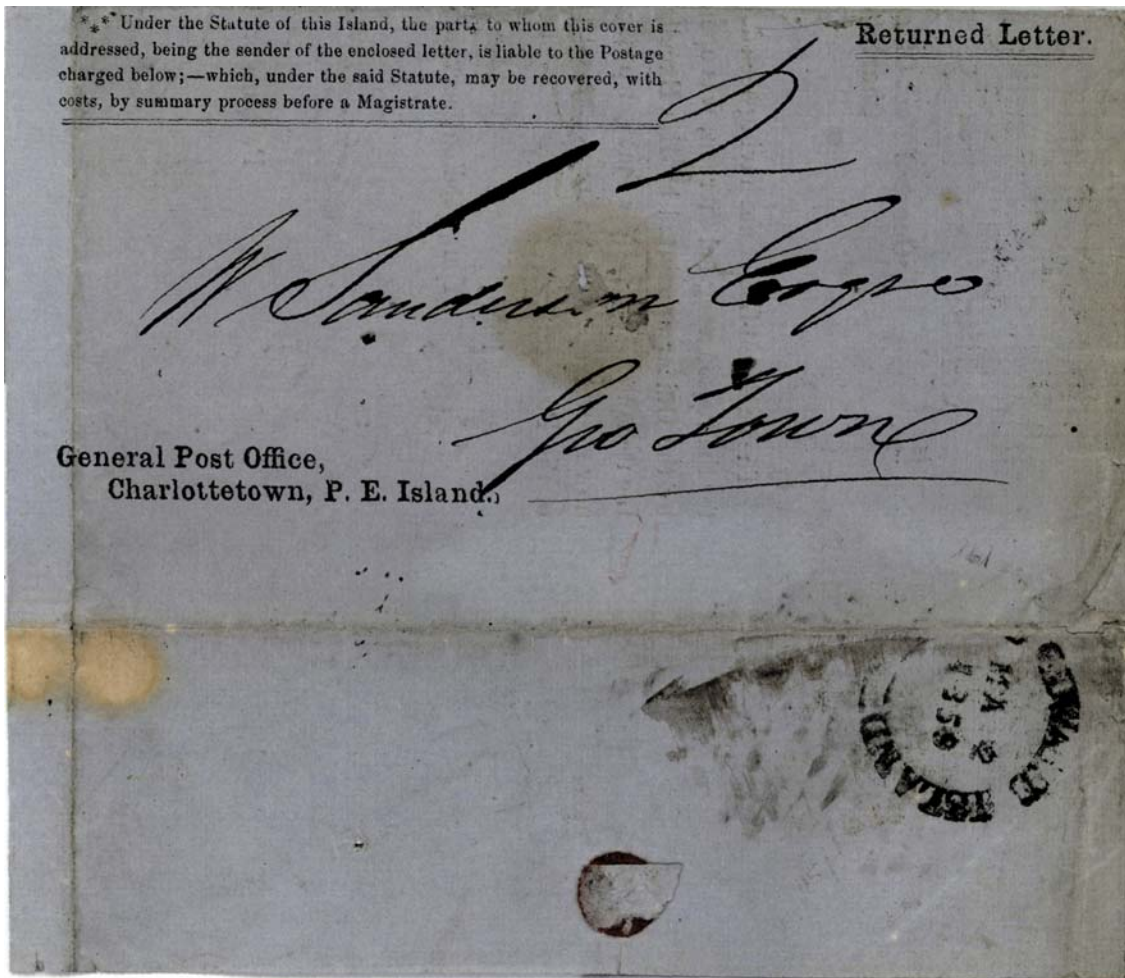 *⁎* Under the Statute of this Island, the party to whom this cover is
addressed, being the sender of the enclosed letter, is liable to the Postage
charged below;—which, under the said Statute, may be recovered, with
costs, by summary process before a Magistrate.
Returned Letter.
2
W Sanderson Esqre
Geo Town
General Post Office,
Charlottetown, P. E. Island.
161
EDWARD ISLAND
MA 2